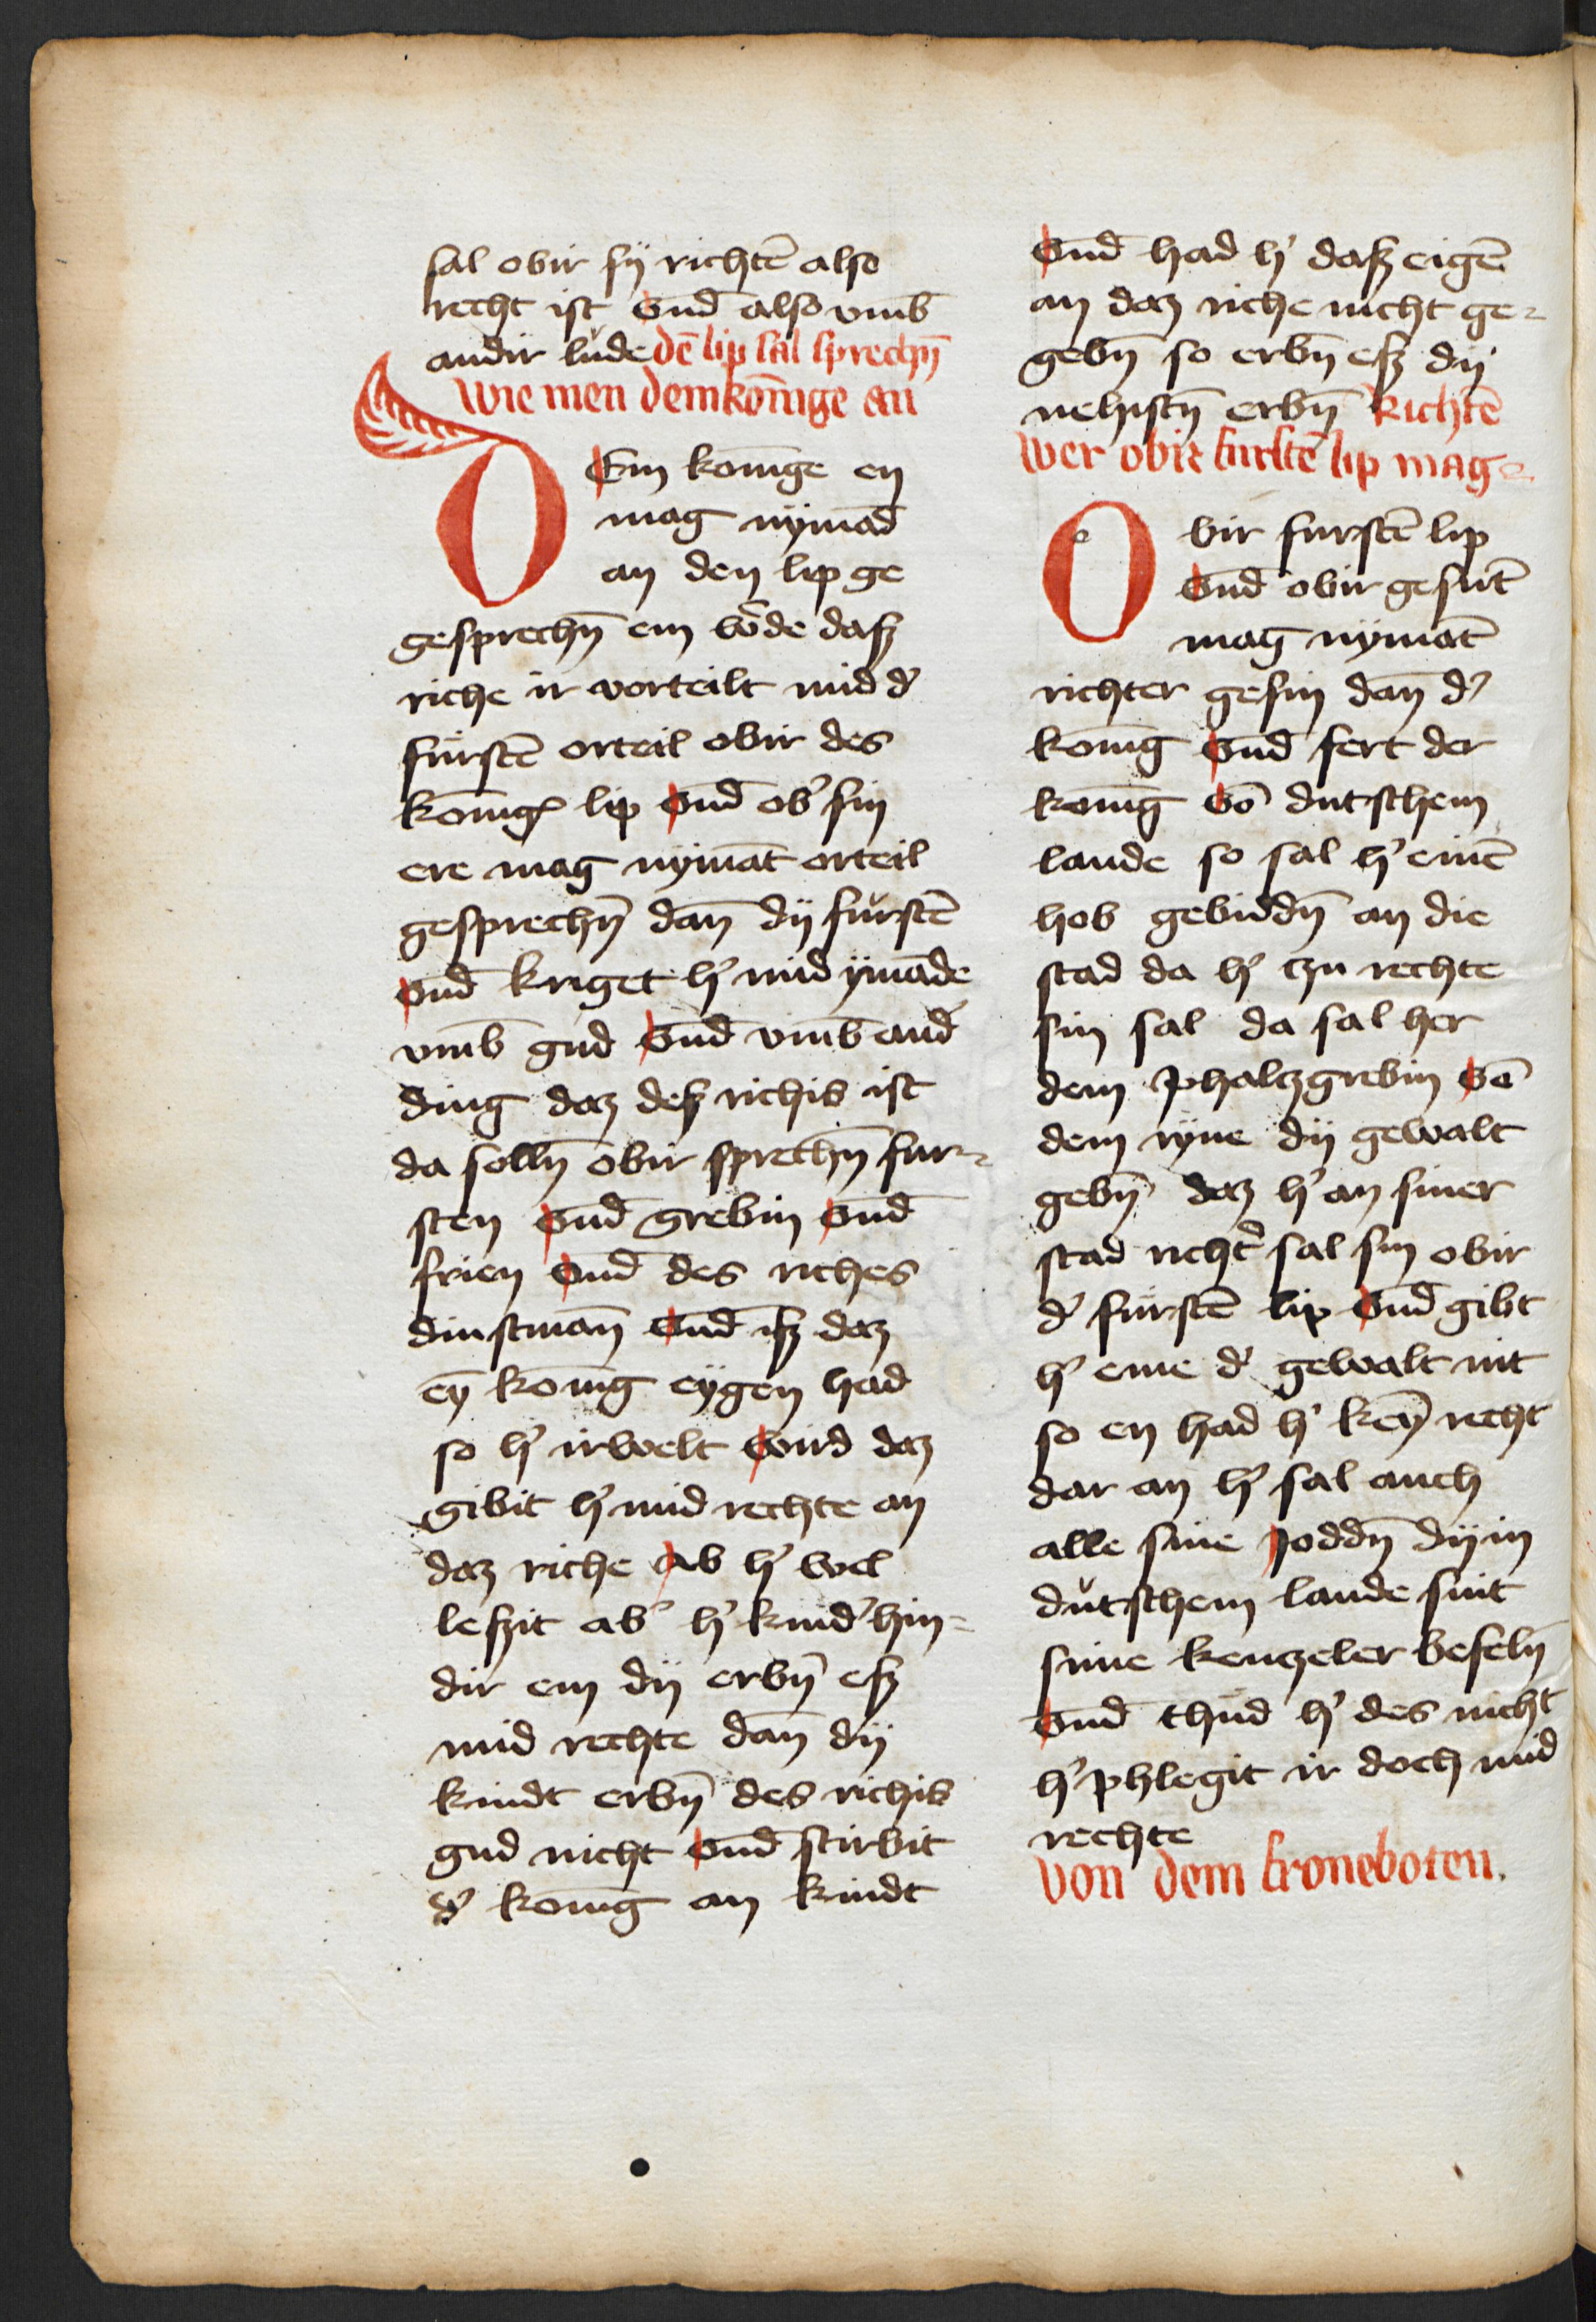 sal obir sij richtē also
recht ist vnd̄ also vm̄b
andir lude dē lip sal sprechn̄
wie men dem kōnige an
DEm konīge en
mag nÿmād
an den lip ge
gesprechn̄ em w̄de dasz
riche ir vorteilt mid d'
fürstē orteil obir des
konīgs lip vnd̄ ob' sin
ere mag nymāt orteil
gesprechn̄ dan̄ dij fürstē
vnd̄ kriget h' mid ÿmāde
vm̄b gud vnd̄ vm̄b and'
ding daz desz richis ist
da solln̄ obir sprechn̄ fur-
sten vnd̄ grebin vnd̄
frien vnd̄ des riches
dinstman̄ vnd̄ isz daz
eȳ konīg eÿgen had
so h' irwelt wird daz
gibit h' mid rechte an
daz riche Ab h' wel
leszit ab' h' kind' hin-
dir em dij erbn̄ esz
mid rechte dan̄ dij
kindt erbn̄ des richis
gud nicht vnd̄ stirbit
d' konīg an kindt
vnd̄ had h' dasz eigē
an daz riche nicht ge-
gebn̄ so erbn̄ esz dij
nehistn̄ erbn̄ Richtē
wer obir furstē lip mag
Obir furstē lip
vnd̄ obir gesūt
mag nÿmāt
richter gesin dan̄ d'
konīg vnd̄ fert der
konīg vō dutschem
lande so sal h' einē
hob gebiddn̄ an die
stad da h' tzu rechte
sin sal da sal her
dem phaltzgrebin vō
dem ryne dij gewalt
gebn̄ daz h' an siner
stad richt' sal sin obir
d' fürstē lip vnd̄ gibt
h' eme d' gewalt nit
so en had h' keȳ recht
dar an h' sal auch
alle sine Joddn̄ dij in
dutschem lande sint
sime kentzeler befeln̄
vnd̄ thud h' des nicht
h' phlegit ir doch mid
rechte
von dem froneboten.